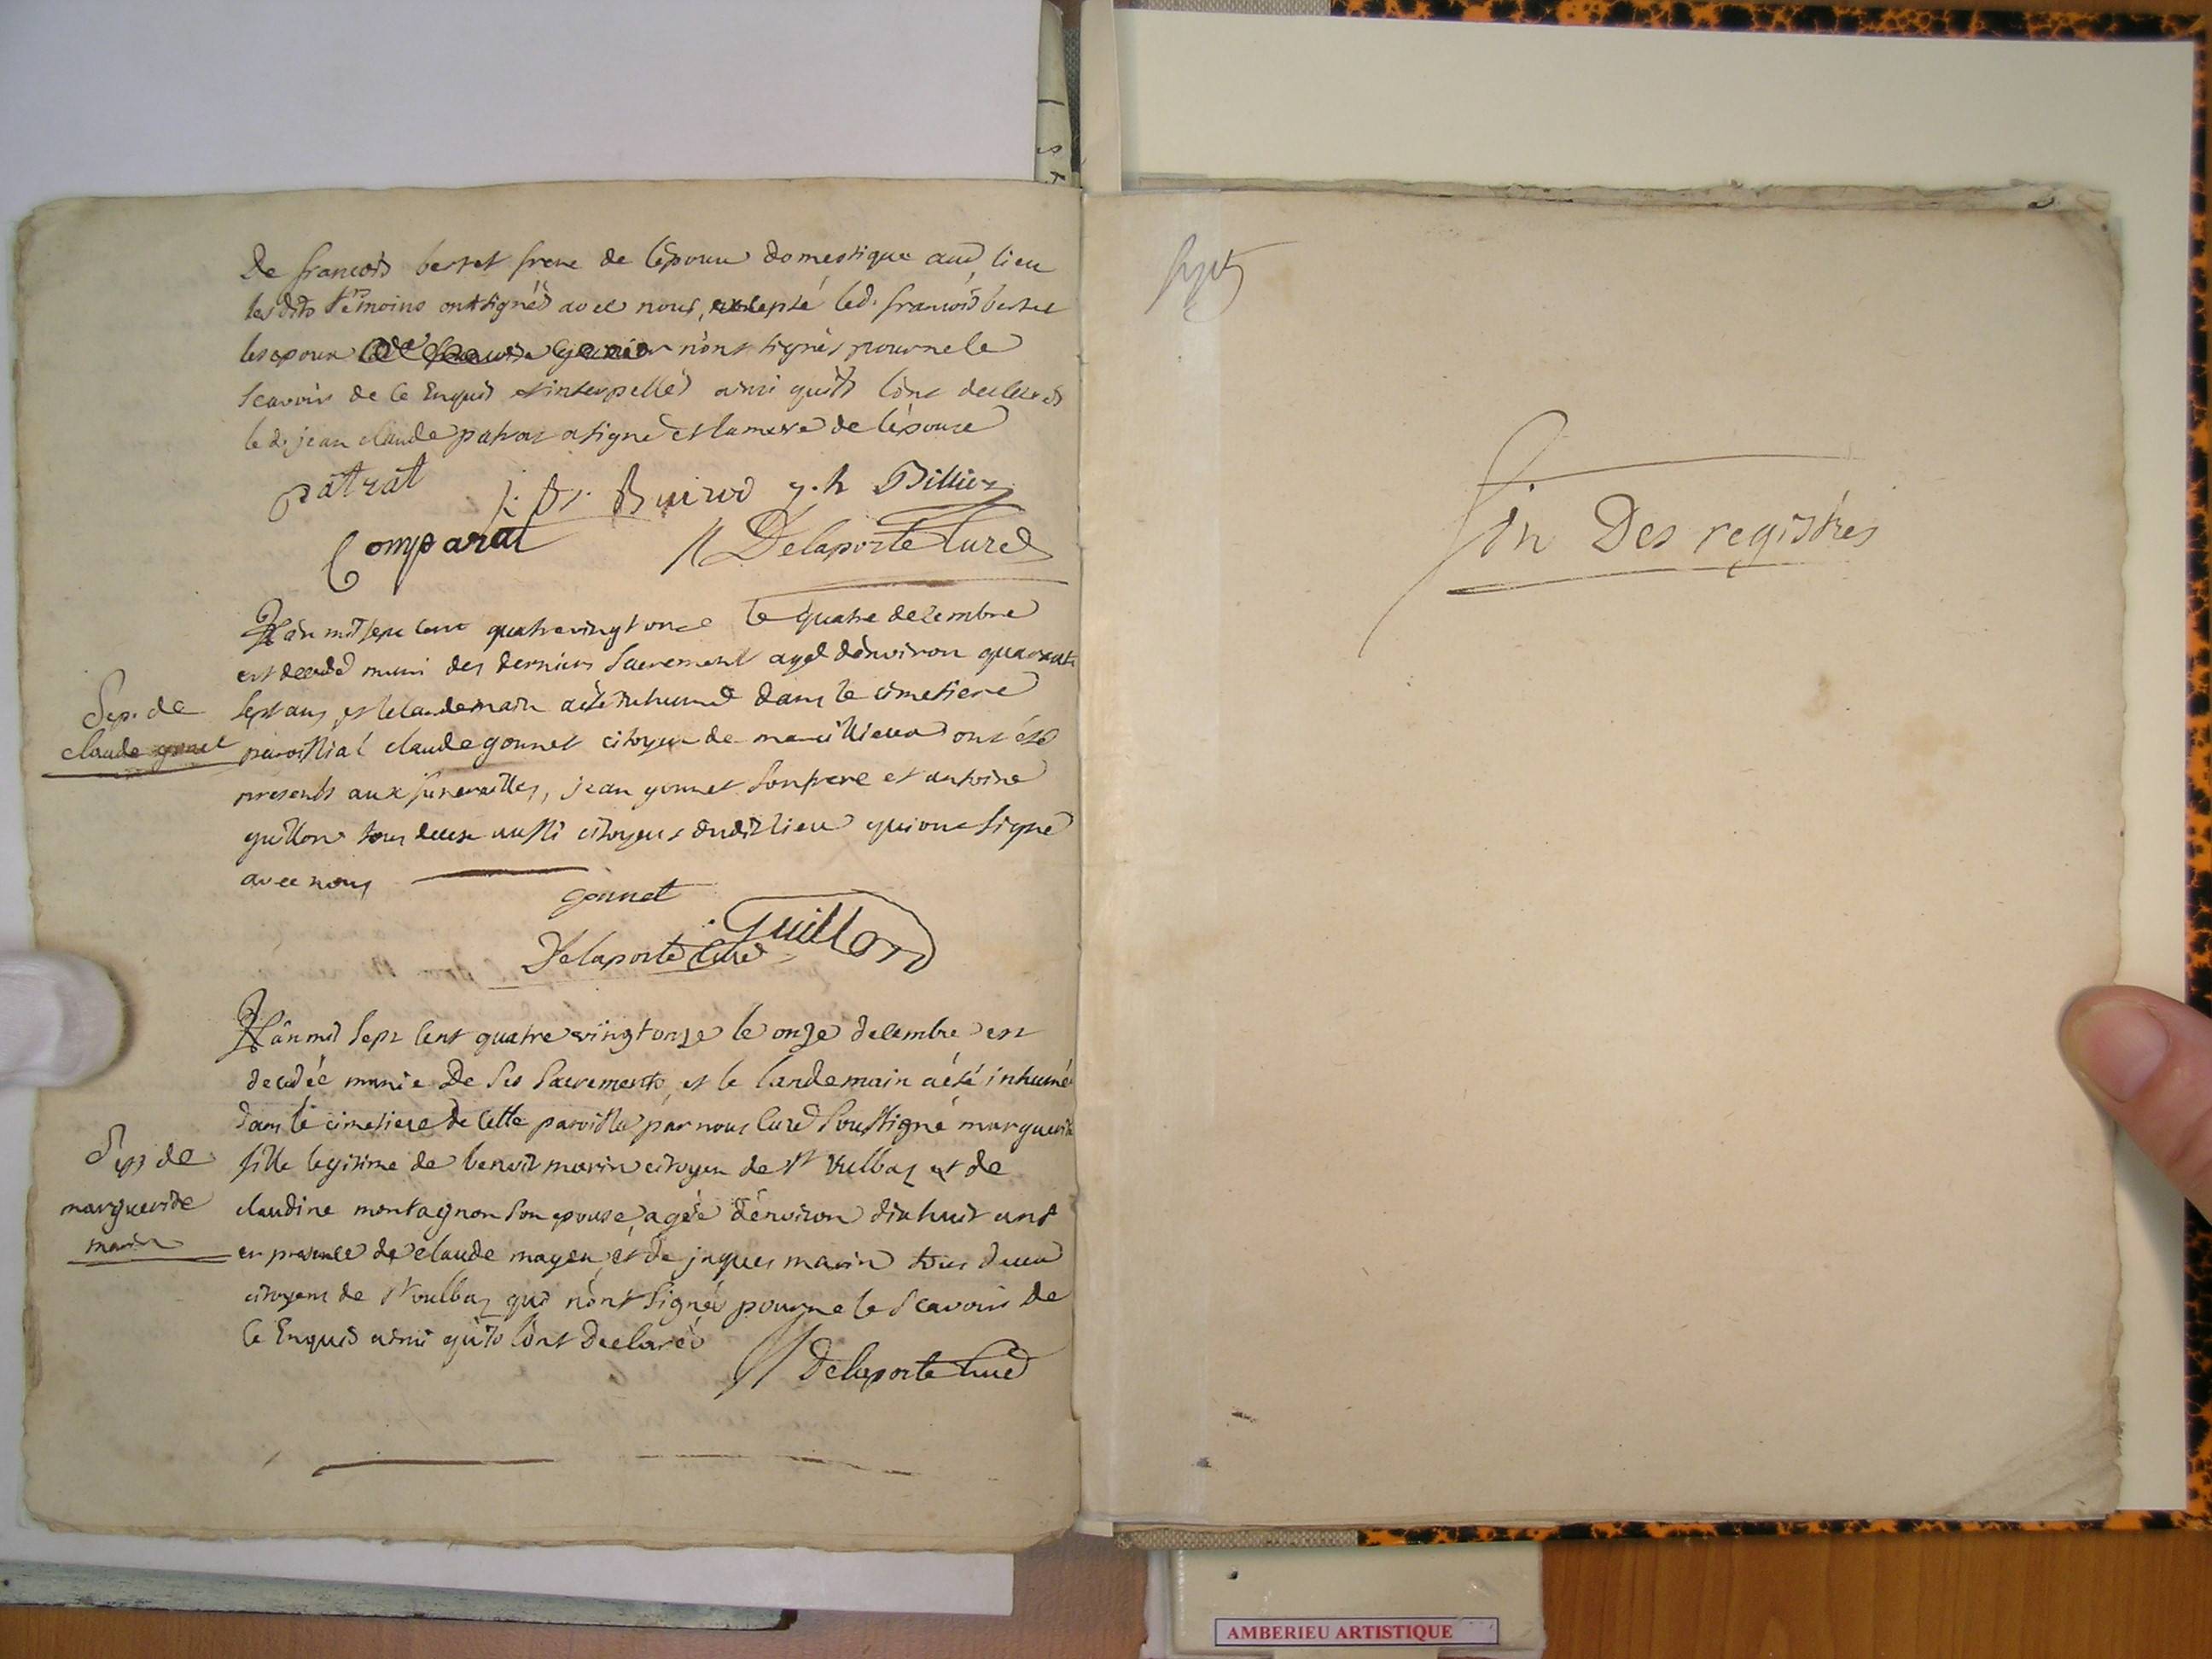 De francois bertet frere de l'epoux domestique aud. lieu
lesdits témoins ont signés avec nous, excepté led. francois bertet
les epoux n'ont signés pour ne le
scavoir de ce Enquis et interpellés ainsi quils l'ont declarés
le d. jean claude patrat a signé et la mere de l'épouse
patrat j. Bt. Buirod j. h Billion
Comparat Delaporte Curé
L'an mil sept cent quatrevingt onze le quatre decembre
est decedé muni des derniers Sacrement agé d'environ quarante
sept ans, et le landemain a été inhumé dans le cimetiere
Sep. de
claude gonet
paroissial claude gonnet citoyen de marcillieux ont été
presents aux funerailles, jean gonnet son frere et antoine
guillon tous deux aussi citoyens dudit lieu qui ont signé
avec nous
gonnet
Guillon
Delaporte Curé
L'an mil Sept Cent quatre vingt onze le onze decembre est
decedée munie De ses Sacrements, et le landemain a été inhumé
dans le cimetiere de Cette paroisse par nous Curé Soussigné marguerite
Sep. de
marguerite
marin
fille legitime de benoit marin citoyen de St Vulbaz et de
claudine montagnon son epouse, agée d'environ dixhuit ans
en presence de claude mayeu, et de jaques marin tous deux
citoyens de St vulbaz qui n'ont signés pour ne le scavoir de
ce Enquis ainsi qu'ils l'ont Declarés
Delaporte Curé
Fin Des registres
AMBERIEU ARTISTIQUE